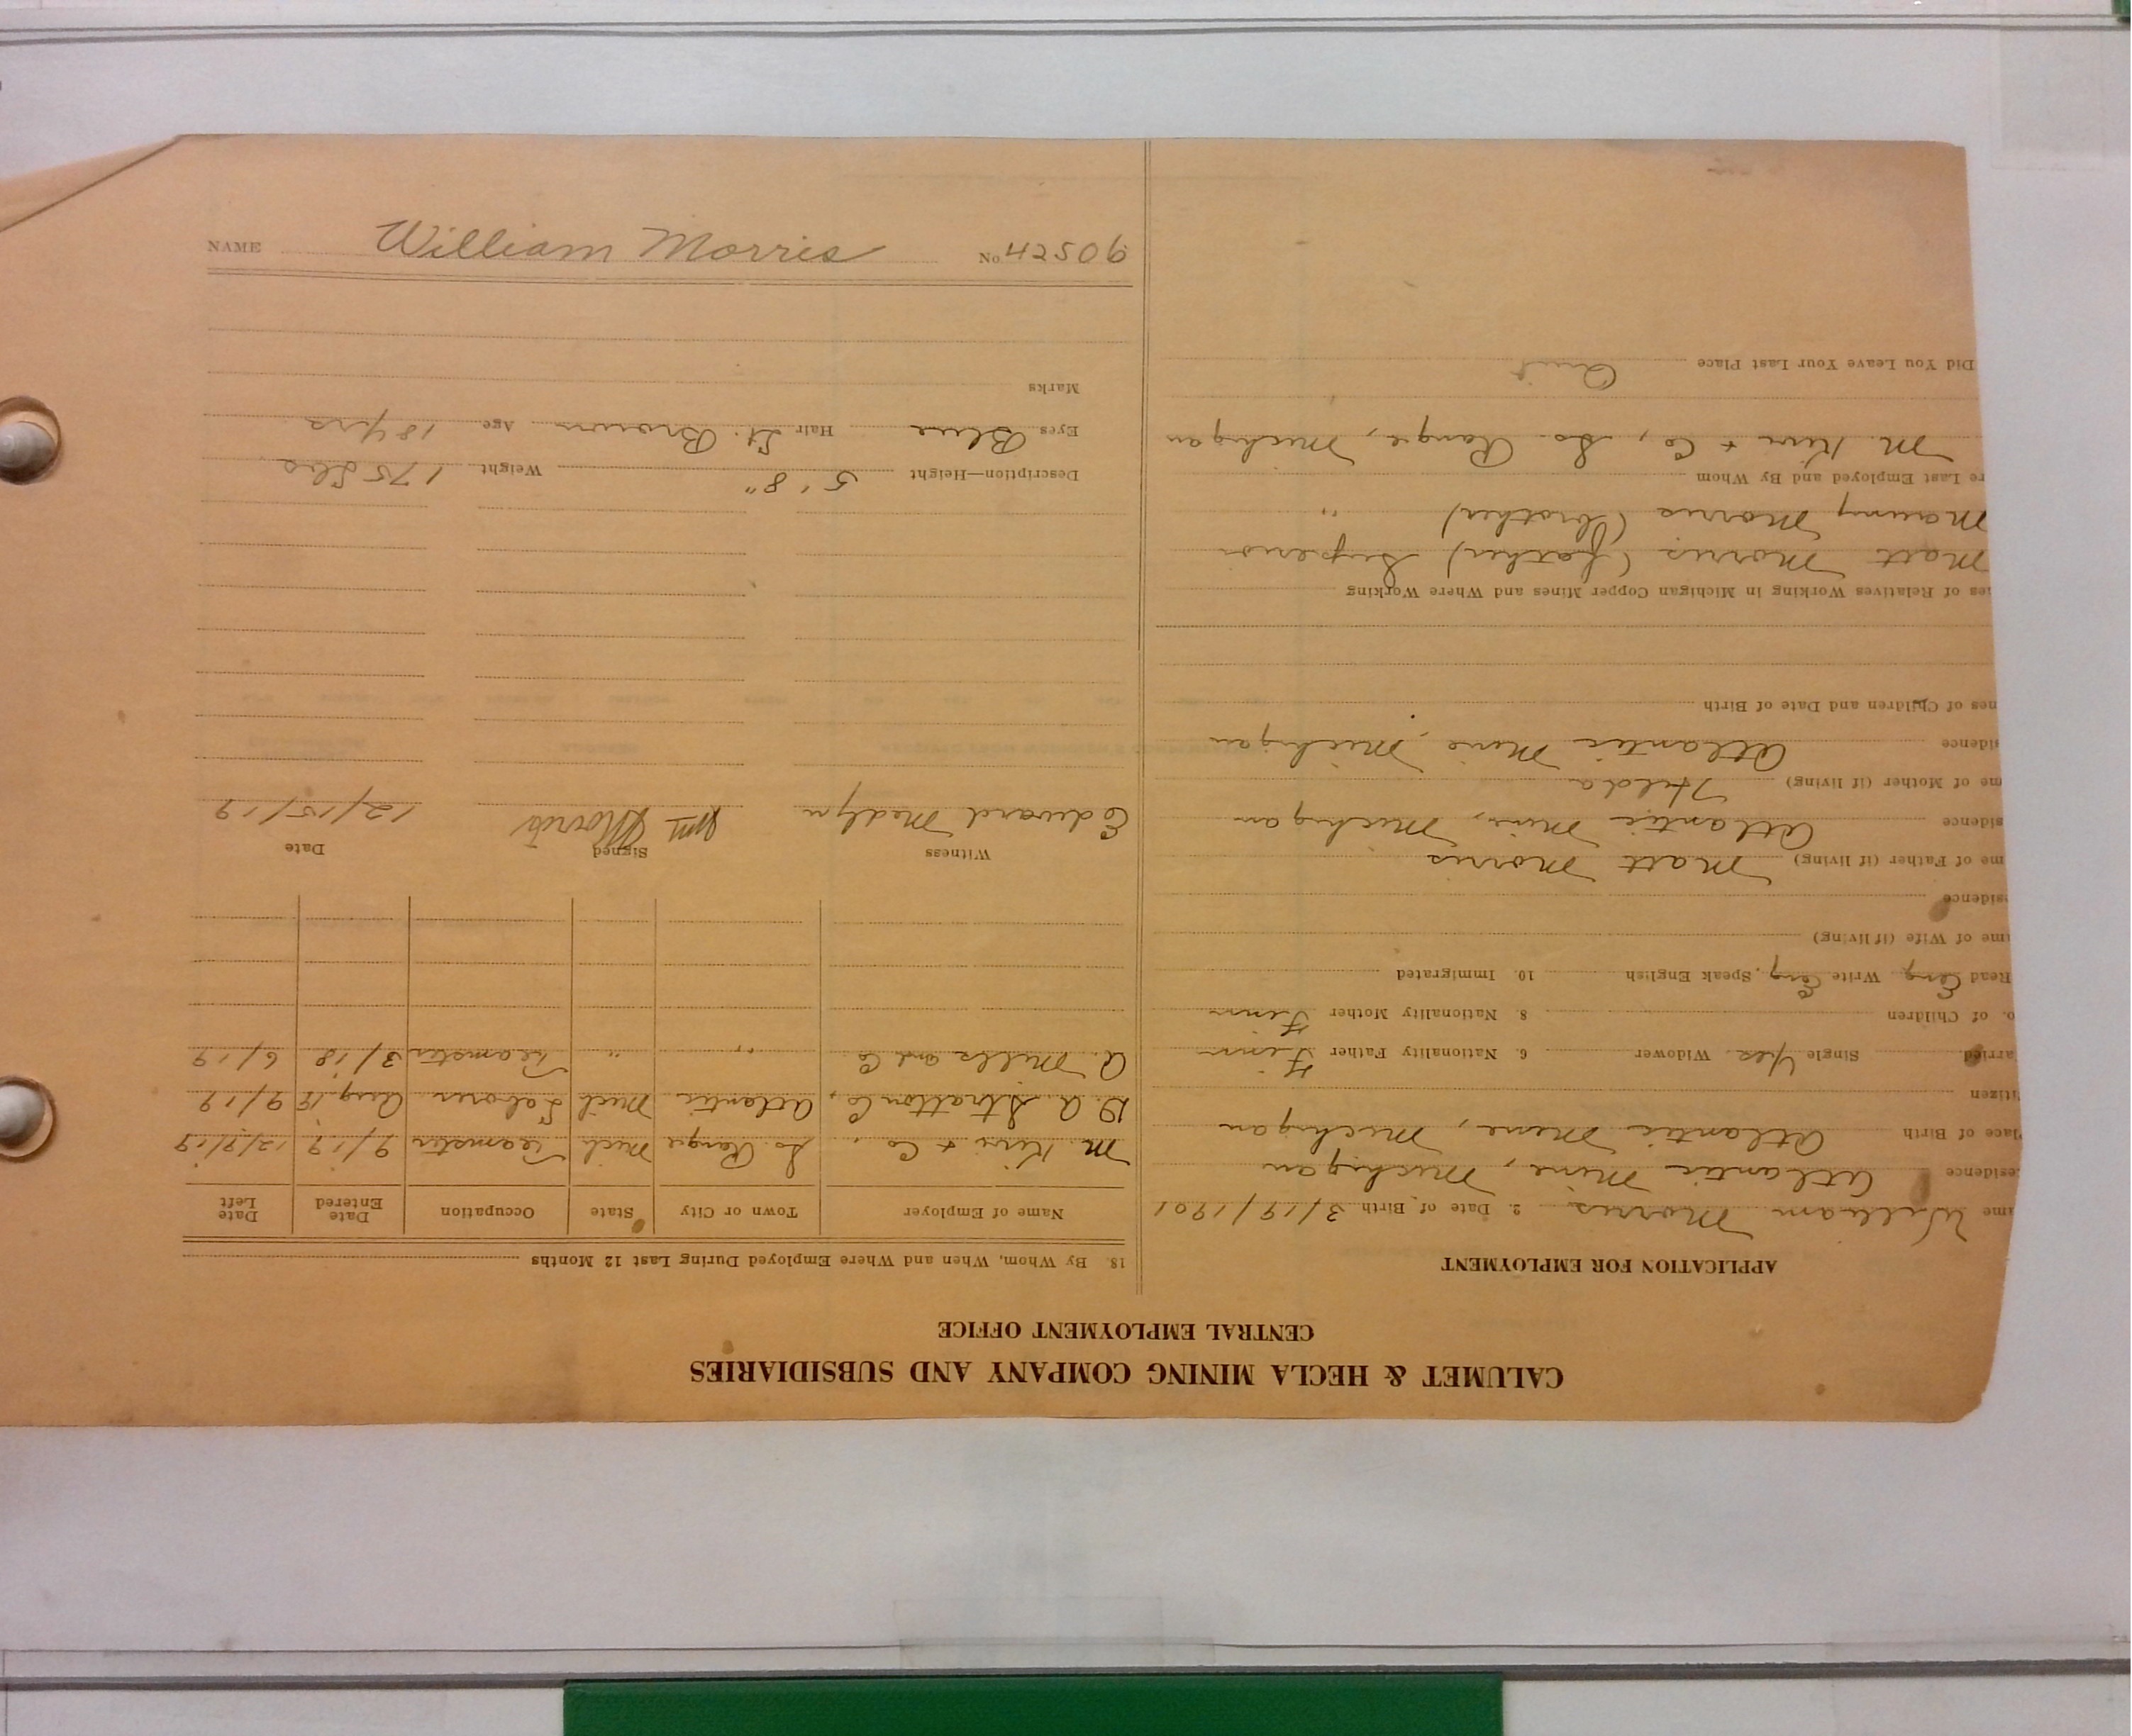 CALUMET & HECLA MINING COMPANY AND SUBSIDIARIES
CENTRAL EMPLOYMENT OFFICE
APPLICATION FOR EMPLOYMENT
ame William Morris 2. Date of Birth 3/19/1901
esidence Atlantic Mine, Michigan
Place of Birth Atlantic Mine, Michigan
itizen
arried Single Yes Widower 6. Nationality Father Finn
o. of Children 8. Nationality Mother Finn
Read Eng Write Eng. Speak English 10. Immigrated
ame of Wife (if living)
sidence
me of Father (if living) Matt Morris
sidence Atlantic Mine, Michigan
me of Mother (if living) Hilda
sidence Atlantic Mine, Michigan
nes of Children and Date of Birth
es of Relatives Working in Michigan Copper Mines and Where Working
Matt Morris (father) Superior
Morris (brother) "
re Last Employed and By Whom
M. & Co, So. Range, Michigan
Did You Leave Your Last Place Quit
18. By Whom, When and Where Employed During Last 12 Months
Name of Employer Town or City State Occupation Date Entered Date Left
M. & Co, So. Range Mich Teamster 9/19 12/9/19
D. A. Stratton Co, Atlantic Mich Laborer Aug 19 9/19
A. Mills and Co " " Teamster 3/18 6/19
Witness Signed Date
Edward Medlyn Wm Morris 12/15/19
Description—Height 5' 8" Weight 175 Lbs
Eyes Blue Hair Lt. Brown Age 18 yrs
Marks
NAME William Morris No. 42506